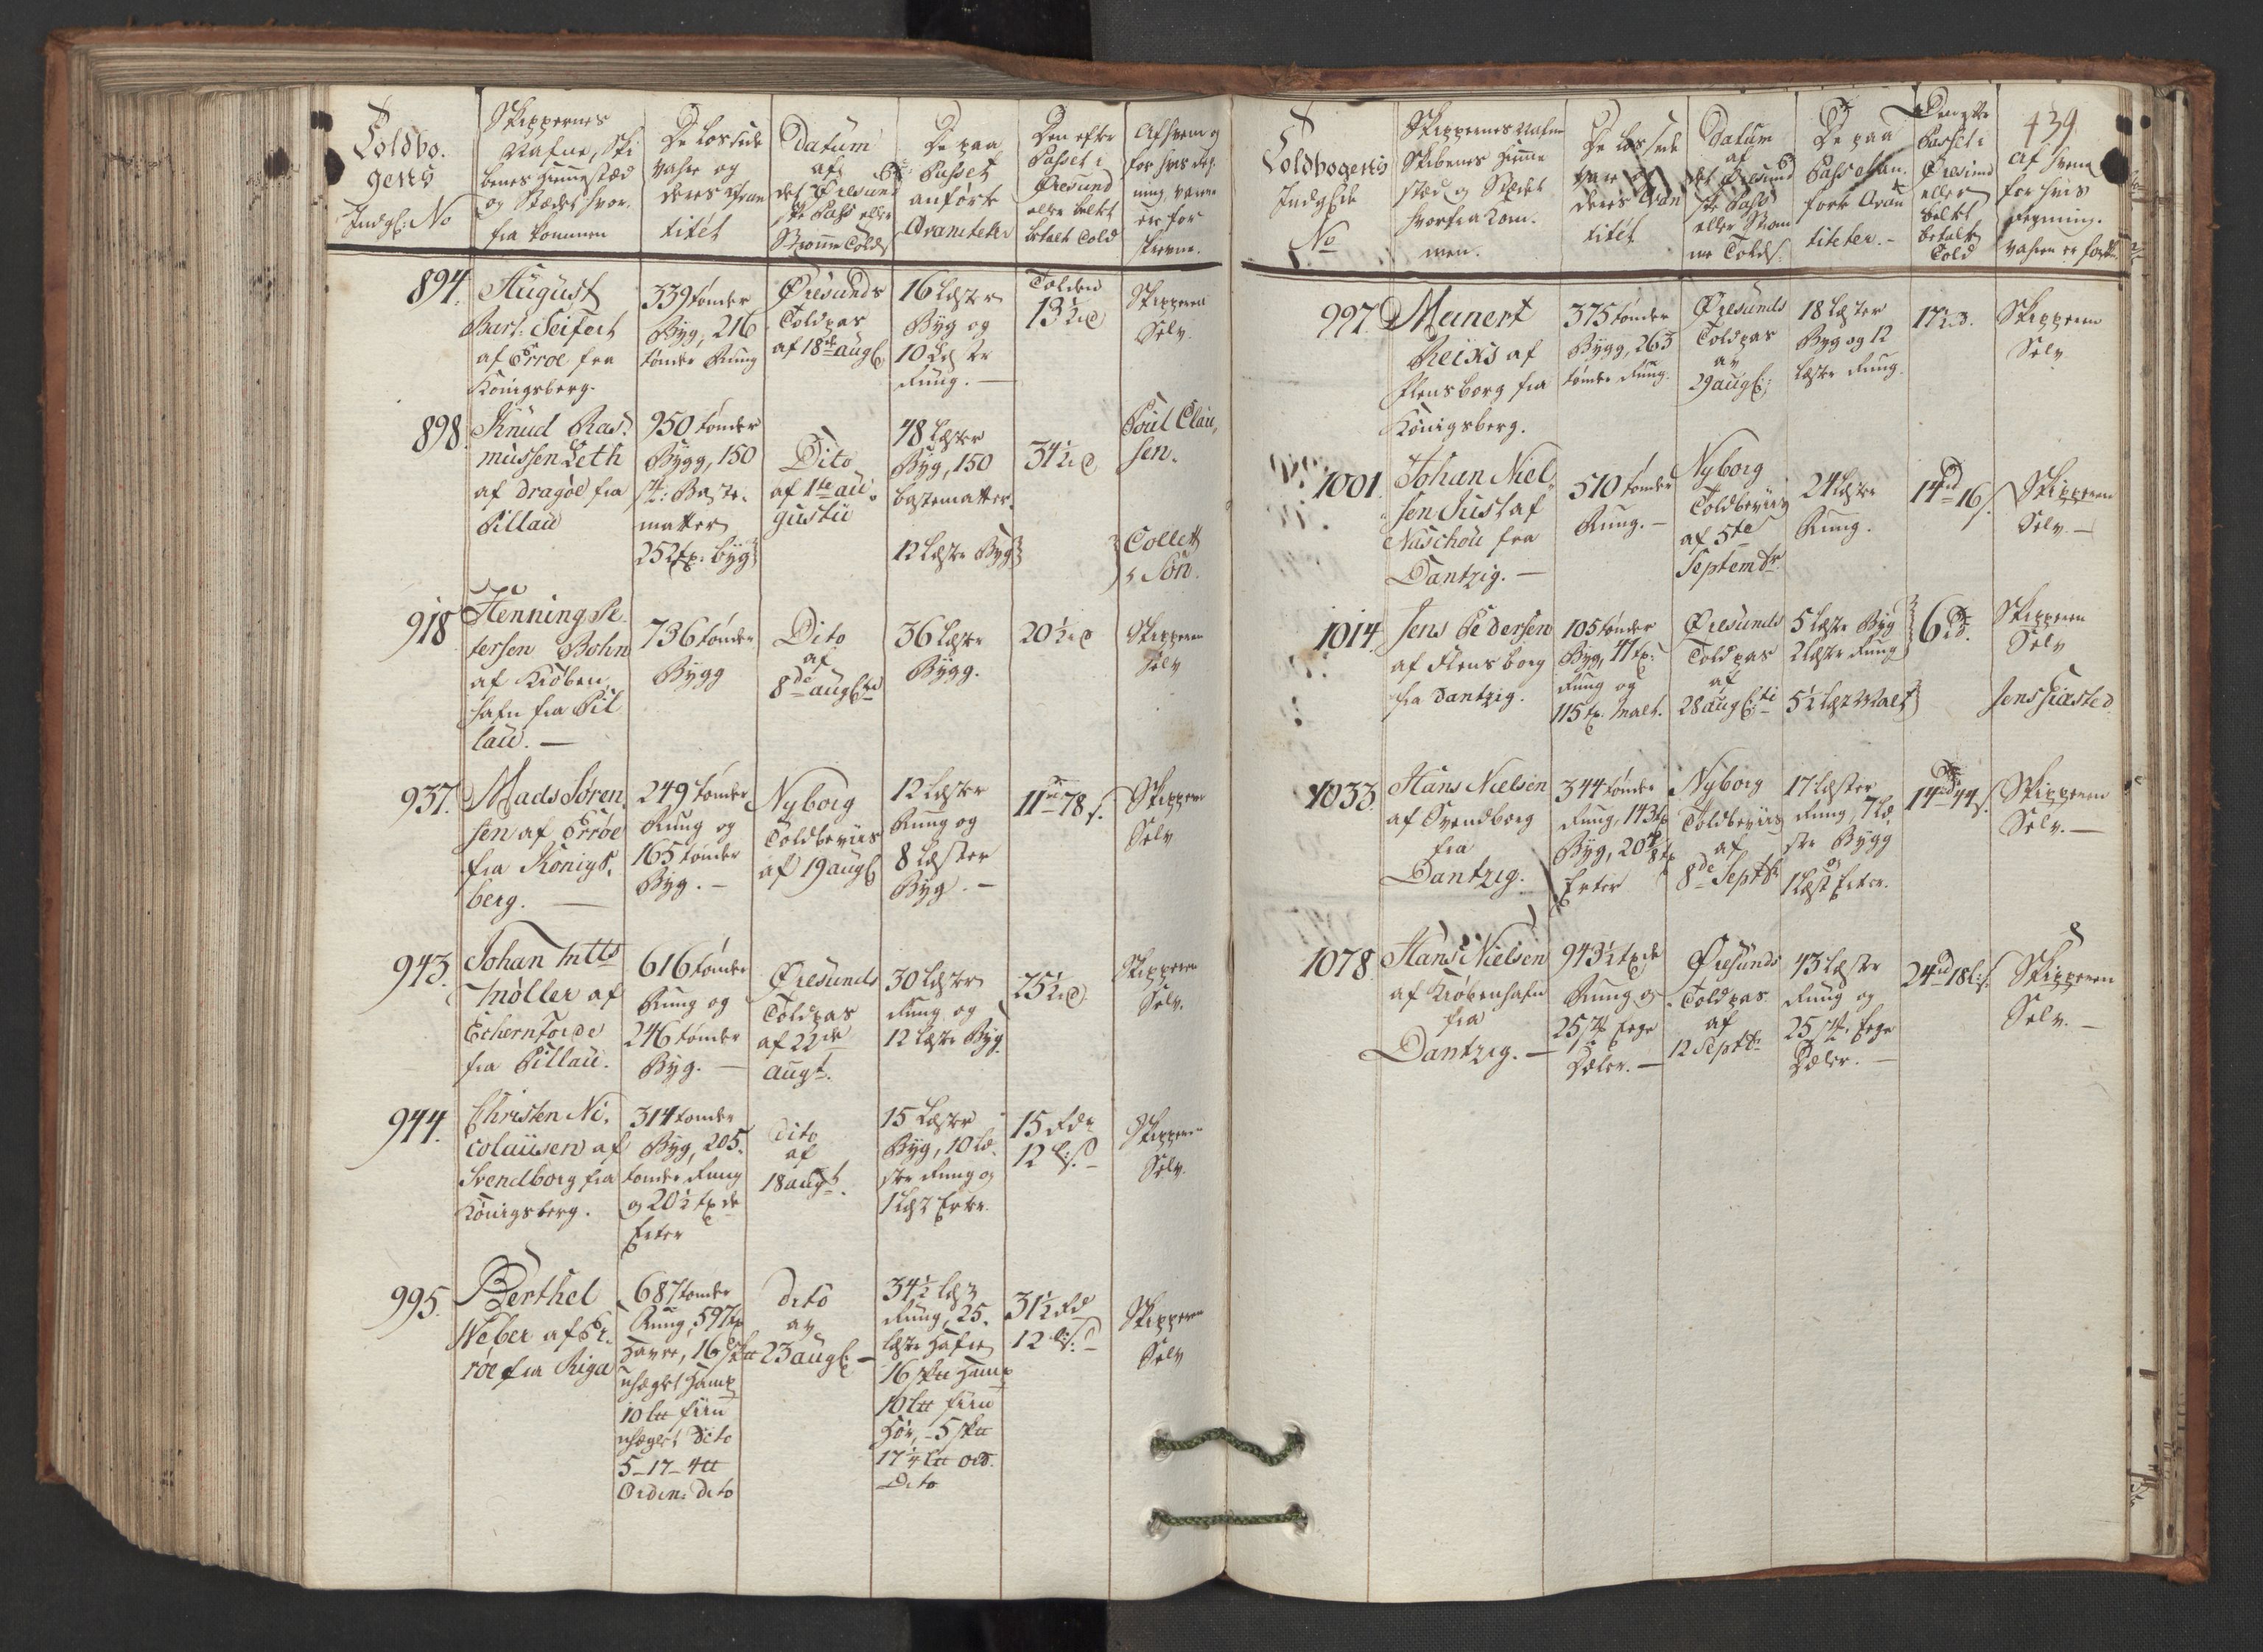 Toldbo-
gens
Indg: No
Skippernes
Nafne, Ski
benes Hiemstæd
og Stædet hvor-
fra kommen
De lossede
Vahre og
deres Qvan
titét
Datum
af
det Øresund
ske Pass eller
Strømme Told
De paa
Passet
anførte
Qvantiteter
Den efter
Passet i
Øresund
eller Beltet
betalt Told
Af hvem og
for hvis reg-
ning, varene
er for
skrevne.
894.
August
Bart. Seifert
af Erroe fra
Königsberg.
339 tønder
Byg, 216
tønder Rug
Øresunds
Toldpas
af 18de aug
16 Læster
Byg og
10 Læster
Rug.
Tolden
13½ rd
Skipperen
Selv.
898.
Knud Ras-
mussen Leth
af Dragøe fra
Pillau
950 tønder
Bygg, 150
st: Baste-
matter
252 tr. byg
Dito
af 1te au-
gustii
48 Læster
Byg, 150
bastematter.
12 Læster Byg
34½ rd
Poul Clau-
sen.
Collett
& Søn.
918
Henning Pe-
tersen Bohn
af Kiøben-
hafn fra Pil
lau. —
736 tønder
Bygg
Dito
af
8de aug
36 Læster
Bygg.
20½ rd
Skipperen
Selv
937.
Mads Søren-
sen af Erröe
fra Königs-
berg. —
249 tønder
Rug og
165 tønder
Byg. —
Nyborg
Toldbeviis
af 19 aug
12 Læster
Rug og
8 Læster
Byg. —
11 rd 78 s.
Skipperen
Selv
943.
Johan
Møller af
Echernforde
fra Pillau.
616 tønder
Rug og
246 tønder
Byg. —
Øresunds
Toldpas
af 22de
augt.
30 Læster
Rug og
12 Læster Byg.
25½ rd
Skipperen
Selv.
944.
Christen Ni-
colaüsen af
Svendborg fra
Königsberg.
314 tønder
Byg, 205
tønder Rug
og 20½ tønde
Erter
Dito
af
18 augt.
15 Læster
Byg, 10 Læ-
ster Rug og
1 Læst Erter.
15 Rdr
12 s. —
Skipperen
Selv.
995.
Berthel
Weber af Er-
röe fra Riga
687 tønder
Rug, 597 tr
Havre, 16
uhæglet Hamp
10
uhæglet Dito
5-17-4
Ordin: Dito
dito
av
23 aug —
34½ Læst
Rug, 25.
Læster Hafre
16 Hamp
10
Hör, 5
17½
Dito
31½ Rd
12 s. —
Skipperen
Selv
439
Toldbogens
Indg. de
No
Skippernes Nafne
Skibenes Hiemme
stæd og Stædet
hvorfra kom-
men.
De lossede
Vare og
deres Qvan
titét
Datum
af
det Øresund
ske Pass
eller Strøm
me Tolds.
De paa
Passet an-
førte Qvan
titeter. -
Den efter
Passet i
Øresund
eller
beltet
betalt
Told
Af hvem
for hvis
regning.
Vahren er
997.
Meinert
Reixs af
Flensborg fra
Königsberg.
375 tønder
Bygg, 263
tønder Rug.
Øresunds
Toldpas
av
29 aug:
18 Læster
Byg og 12
Læster Rug.
17½ rd.
Skipperen
Selv
1001.
Johan Niel-
sen Just af
Naschou fra
Dantzig. —
510 tønder
Rug. —
Nyborg
Toldbeviis
af 5te
Septembr
24 Læster
Rug.
14 rd 16 s.
Skipperen
Selv. —
1014
Jens Pedersen
af Flensborg
fra Dantzig.
105 tønder
Byg, 41 tr.
Rug og
115 tr. Malt.
Øresunds
Toldpas
af
28 augti
5 Læster Byg
2 Læster Rug
5½ Læst Malt
6 rd.
Skipperen
Selv
Jens Hiersted
1033
Hans Nielsen
af Svendborg
fra
Dantzig.
344 tønder
Rug, 143 tr
Byg, 20
Erter
Nyborg
Toldbeviis
af
8de Septbr
17 Læster
Rug, 7 Læ-
ster Bygg
og
1 Læst Erter.
14 rd 44 s.
Skipperen
Selv. —
1078
Hans Nielsen
af Kiøbenhafn
fra
Dantzig. —
943½ tønde
Rug og
25 st. Ege
Dæler. —
Øresunds
Toldpas
af
12 Septbr
43 Læster
Rug og
25 st. Ege
Dæler. —
24 rd 18 s.
Skipperen
Selv. —